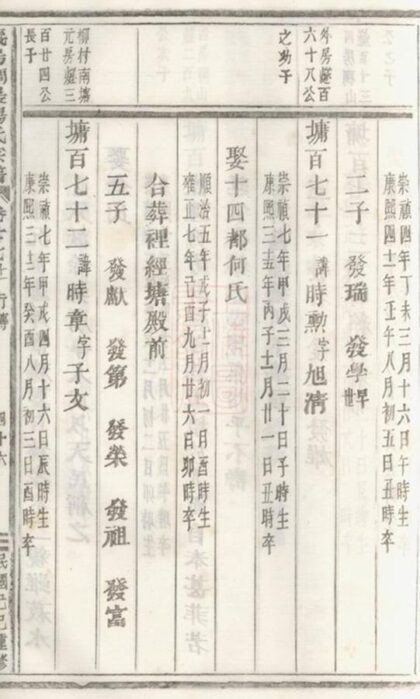 崇禎四年丁未三月十六日午時生
康熙四十一年壬午八月初五日丑時卒
二子 發瑞 發學早世
外房趯百
六十八公
之幼子
塘百七十一 諱時勲字旭清
崇禎七年甲戌三月二十日子時生
康熙三十五年丙子十一月廿一日丑時卒
娶十四都何氏
順治五年戊子十二月初一日酉時生
雍正七年己酉九月廿六日卯時卒
合葬裡經塘殿前
五子 發獻 發第 發榮 發祖 發富
柳村南塘
元房趯三
百廿四公
長子
塘百七十二 諱時章字子文
崇禎七年甲戌四月十六日辰時生
康熙三十二年癸酉八月初三日酉時卒
氏宗譜 行傳 四十六 民國己巳重修